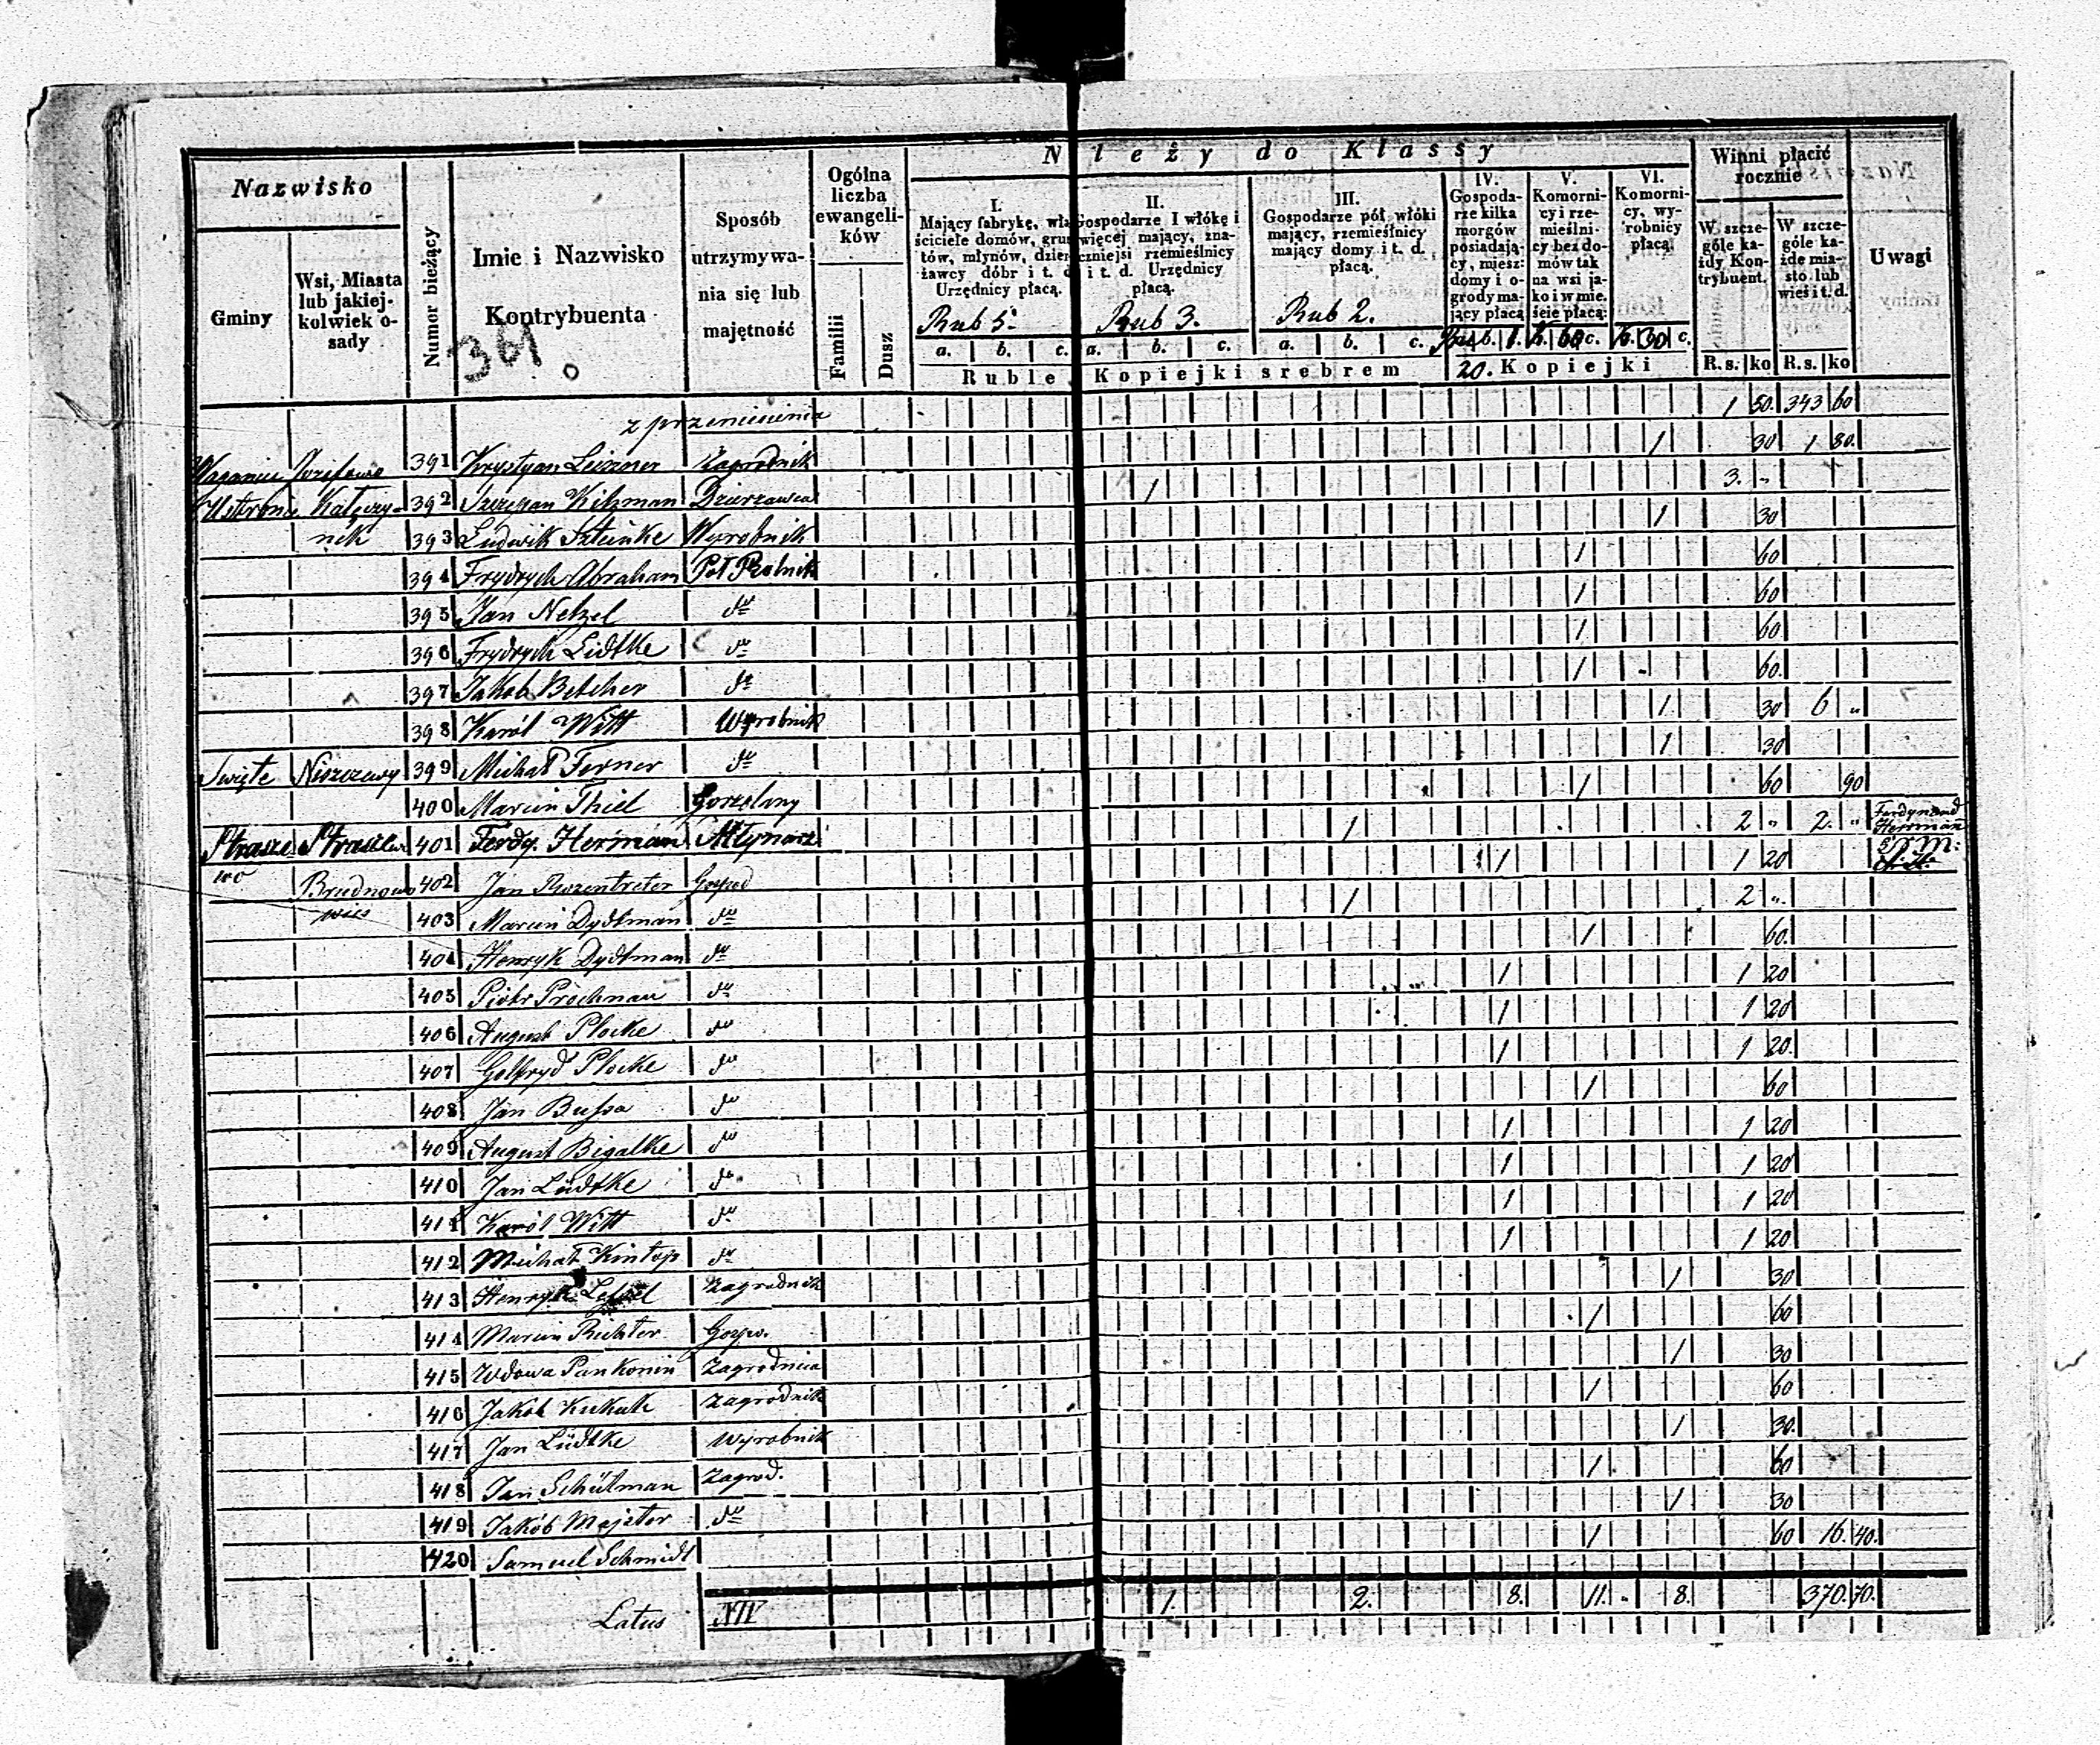 Nazwisko
Gminy
Wsi, Miasta
lub jakiej-
kolwiek o-
sady
Numor bieżący
Imie i Nazwisko
Kontrybuenta
361
Sposób
utrzymywa-
nia się lub
majętność
Ogólna
liczba
ewangeli-
ków
Familii
Dusz
N leży do Klassy
I.
Mający fabrykę, wła-
ściciele domów, grun
tów, młynów, dzier
żawcy dóbr i t. d
Urzędnicy płacą.
Rub 5.
a. b. c.
II.
Gospodarze 1 włókę i
więcej mający, zna-
czniejsi rzemieślnicy
i t. d. Urzędnicy
płacą.
Rub 3.
a. b. c.
III.
Gospodarze pół włóki
mający, rzemieślnicy
mający domy i t. d.
płacą.
Rub 2.
a. b. c.
IV.
Gospoda-
rze kilka
morgów
posiadają-
cy, miesz:
domy i o-
grody ma-
jący płacą
20.
V.
Komorni-
cy i rze-
mieślni-
cy bez do-
mów tak
na wsi ja-
ko i w mie.
ście płacą:
60 c.
VI.
Komorni-
cy, wy-
robnicy
płacą.
30 c.
Ruble Kopiejki srebrem Kopiejki
Winni płacić
rocznie
W szcze-
góle ka-
żdy Kon-
trybuent.
R.s. ko
W szcze-
góle ka-
żde mia-
sto lub
wieś i t. d.
R.s. ko
Uwagi
z przeniesienia 1 50. 343 60
391 Krystyan Leizner Zagrodnik 1 30 1 80.
392 Szczepan Kitzman Dzierżawca 1 3. "
nek 393 Ludwik Szteinke Wyrobnik 1 30
394 Frydrych Abraham Poł Rolnik 1 60
395 Jan Netzel dto 1 60
396 Frydrych Lidtke dto 1 60
397 Jakob Betcher dto 1 60.
398 Karól Witt Wyrobnik 1 30 6 "
Święte Niszczewy 399 Michał Ferner dto 1 30
400 Marcin Thiel Gorzelany 1 60 90
Strasze 401 Ferdy. Herman Młynarz 1 2 " 2. " Ferdynand
Herrman
wo Brudnowo 402 Jan Rozentreter Gospod 1 1 20
wieś 403 Marcin Dydtman dto 1 2 "
404 Henryk Dydtman dto 1 60.
405 Piotr Prochnau dto 1 1 20
406 August Plocke dto 1 1 20
407 Gotfryd Plocke dto 1 1 20.
408 Jan Bussa dto 1 60
409 August Bigalke dto 1 1 20
410 Jan Lüdtke dto 1 1 20
411 Karól Witt dto 1 1 20
412 Michał Kintop dto 1 1 20
413 Henryk Zagrodnik 1 30
414 Marcin Richter Gospo. 1 60
415 Wdowa Pankonin Zagrodnica 1 30
416 Jakób Kukuk Zagrodnik 1 60
417 Jan Lüdtke Wyrobnik 1 30.
418 Jan Schütman Zagrod. 1 60
419 Jakób Majster dto 1 30
420 Samuel Schmidt 1 60 16. 40.
Latus 1. 2. 8. 11. 8. 370. 70.